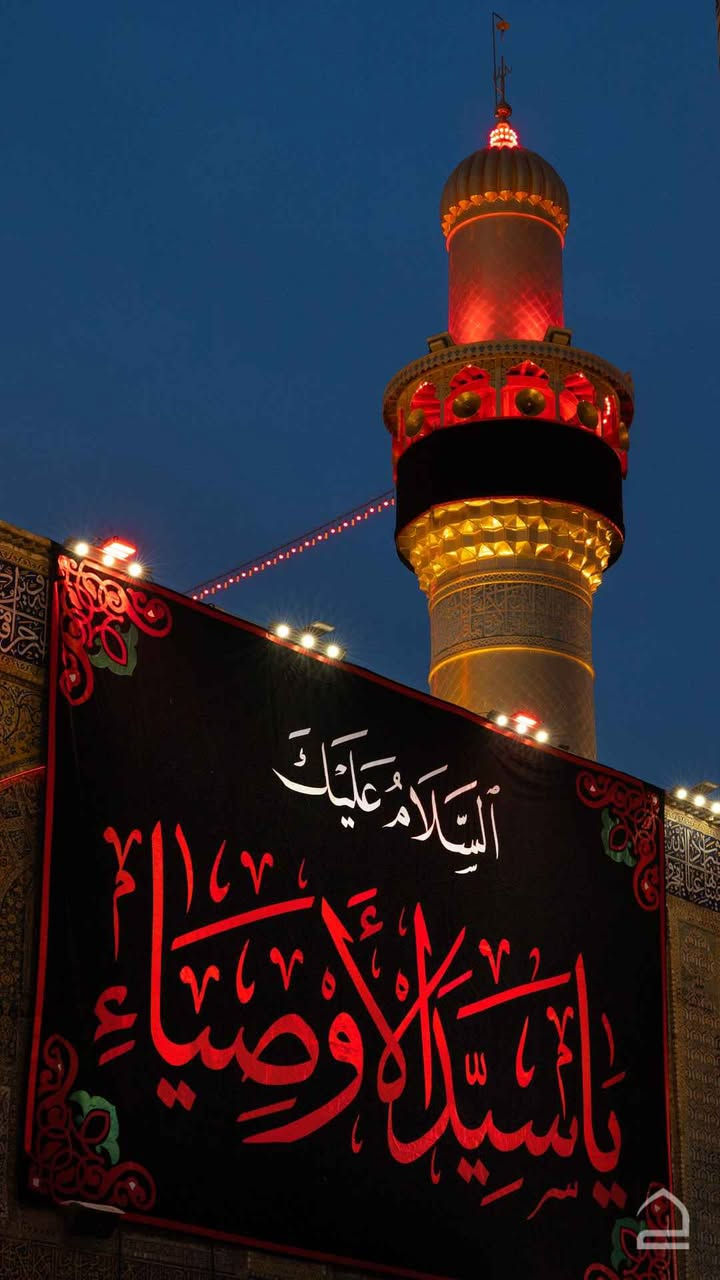 السَّلَامُ عَلَيْكَ
يَا سَيِّدَ الْأَوْصِيَاءِ